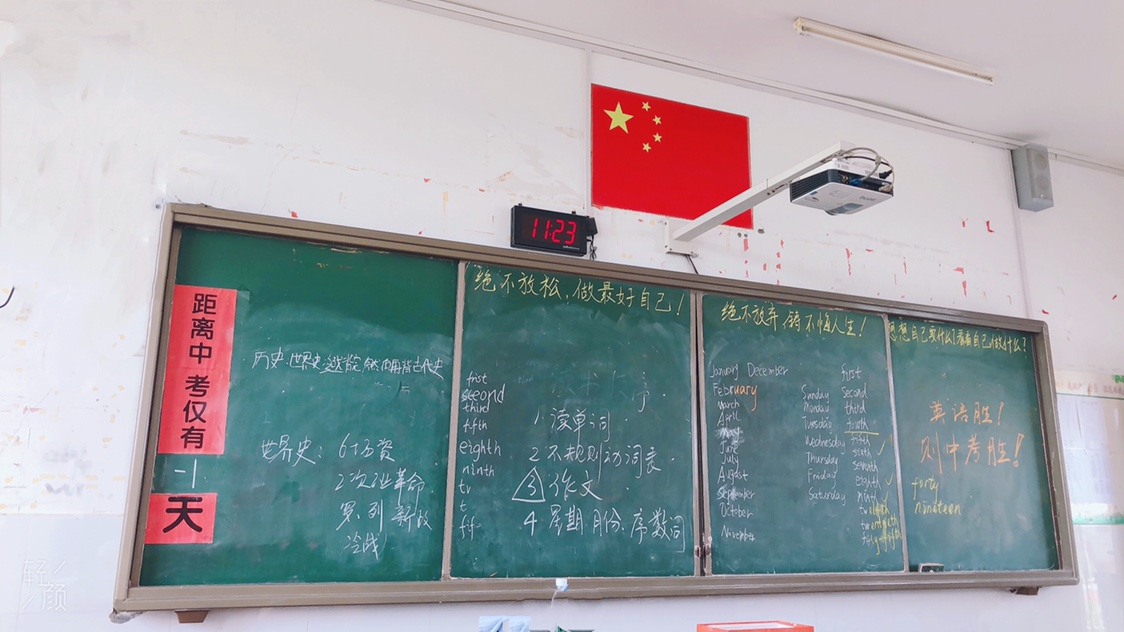 11:23
距离中考仅有
一
天
历史:世界史
世界史:
2次工业革命
冷战
绝不放松,做最好自己!
frist
second
third
fifth
eighth
ninth
序
1.漠单词
2 不规则动词表
③ 作文
4 星期 月份、序数词
绝不放弃,铸不悔人生!
January December
February
March
April
May
June
July
August
September
October
November
Sunday
Monday
Tuesday
Wednesday
Thursday
Friday
Saturday
first
second
third
fourth
fifth
sixth
seventh
eighth
ninth
twelfth
twentieth
想想自己要什么?看看自己做什么?
英语胜!
则中考胜!
forty
nineteen
轻颜